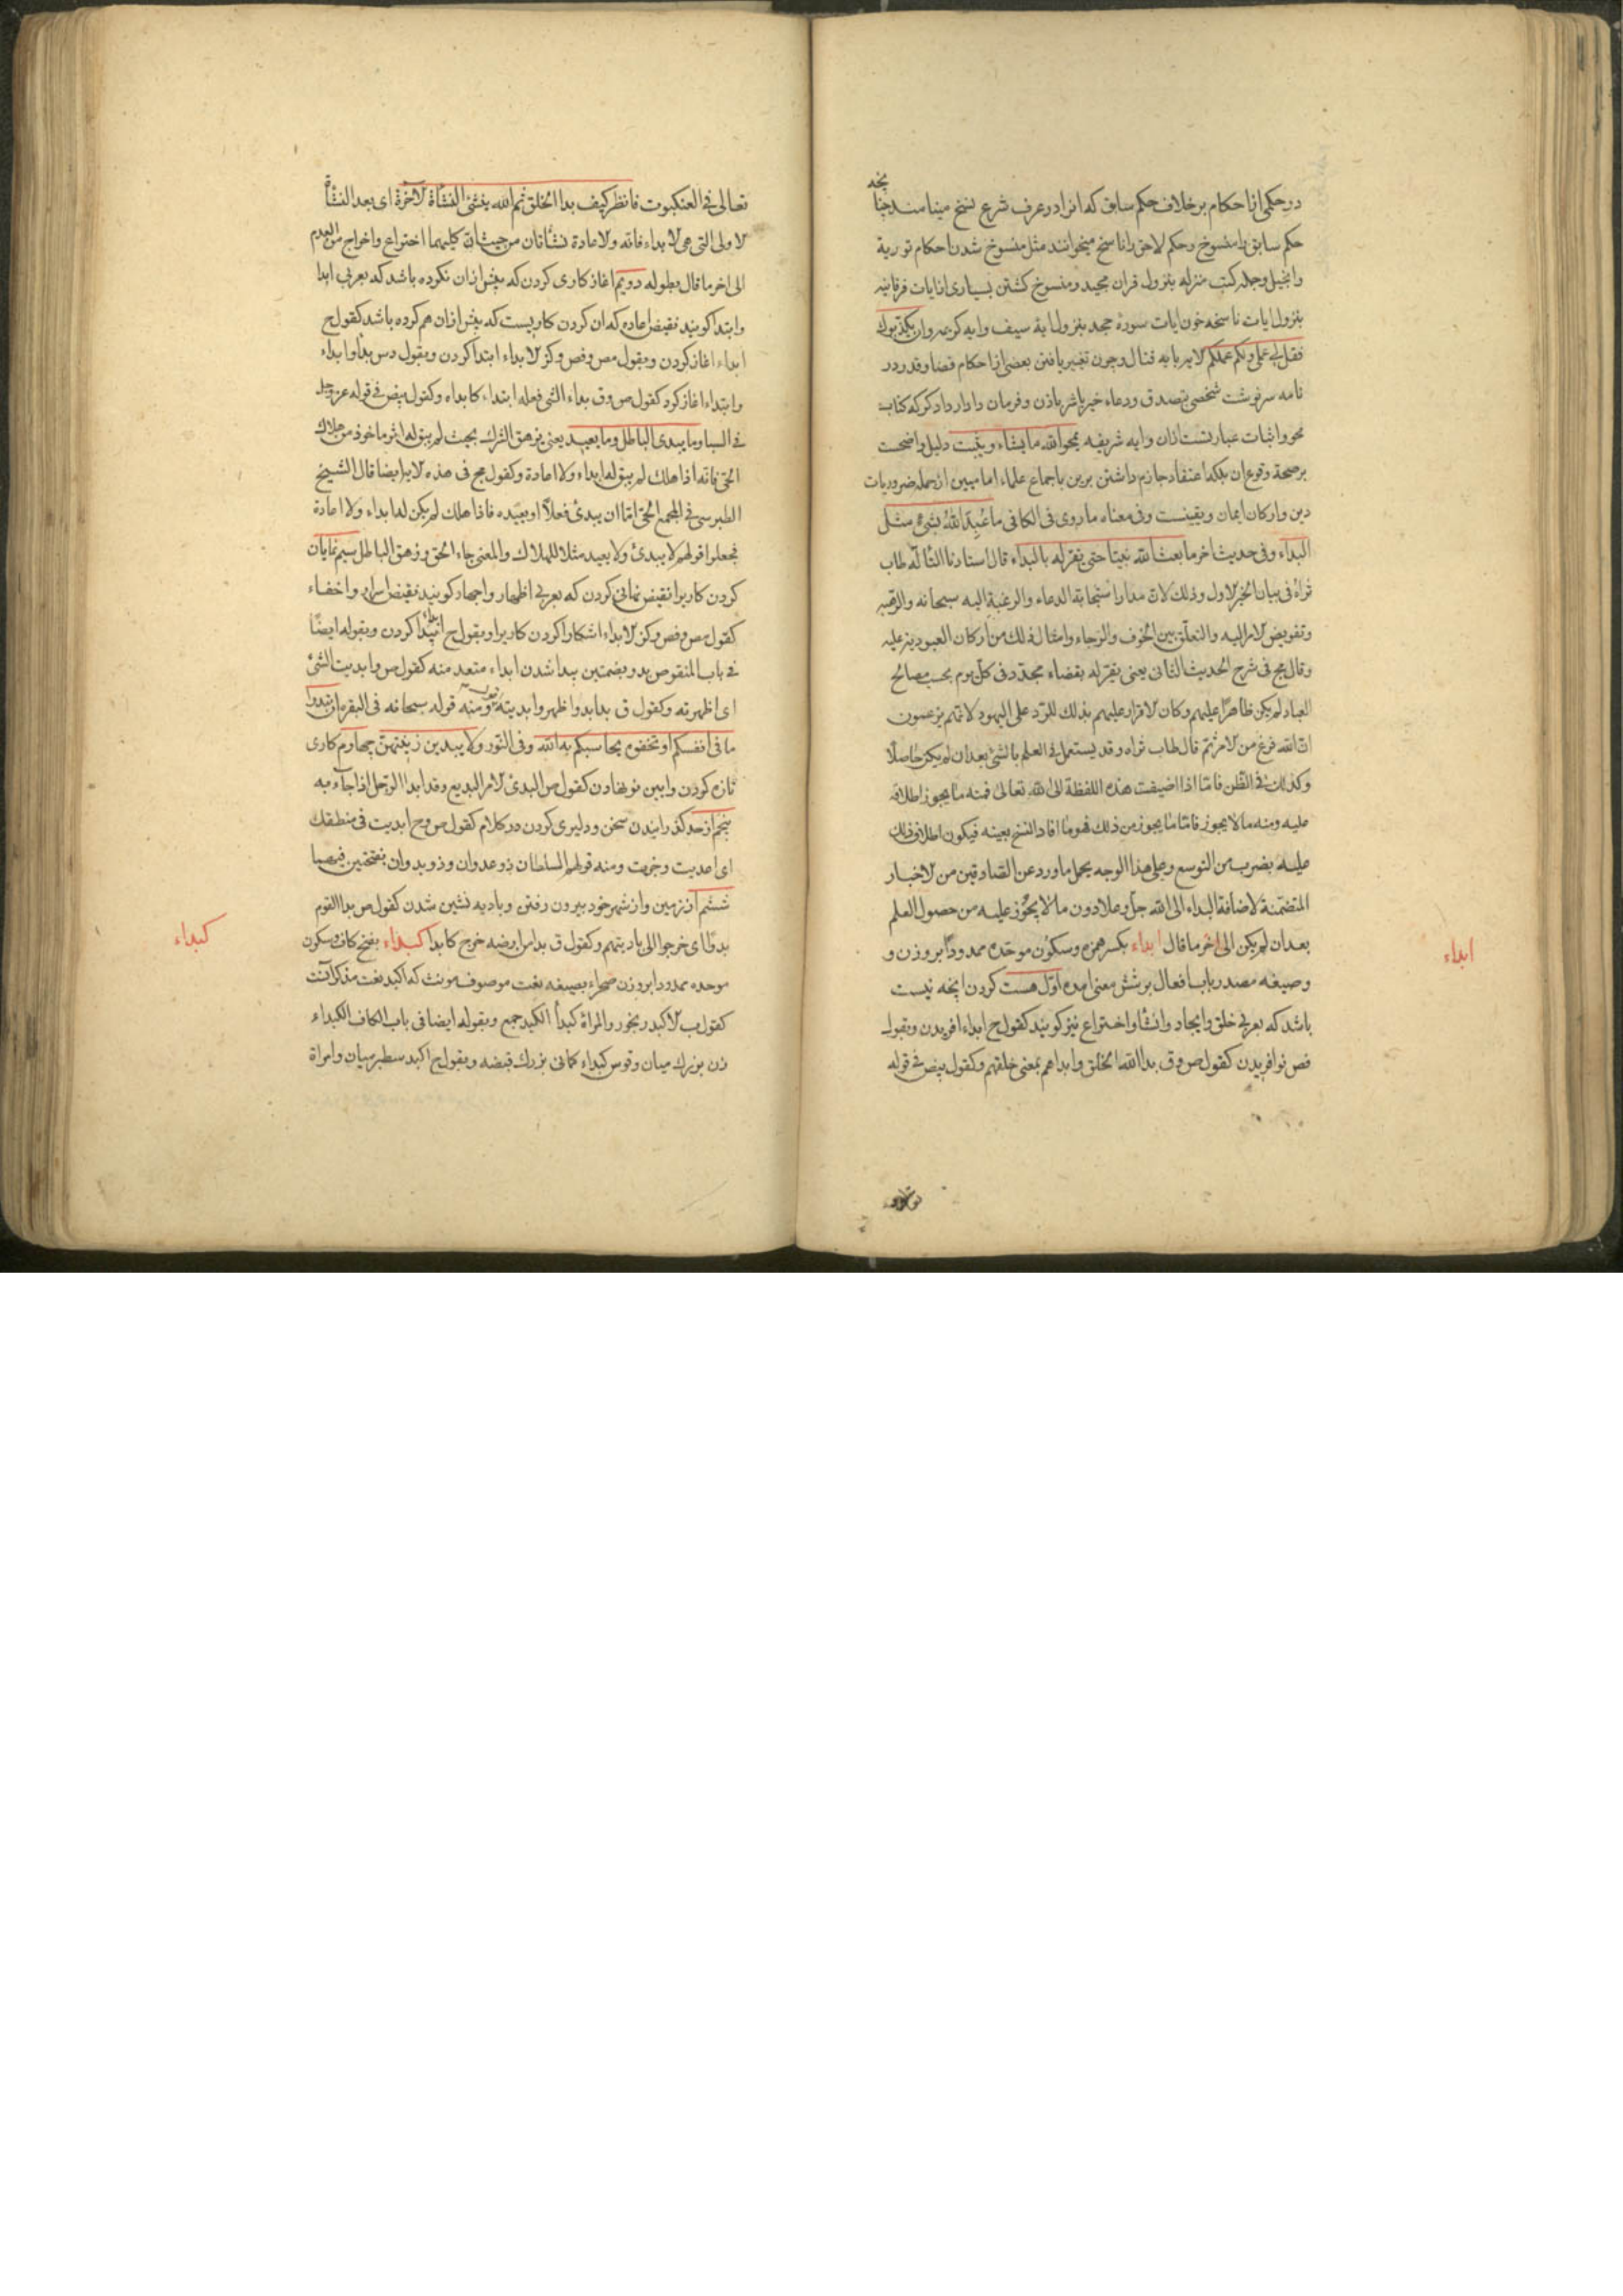 در حکمی از احکام بر خلاف حکم سابق که انرا در عرف شرع نسخ مینامند چنانچه
حکم سابق را منسوخ و حکم لاحق را ناسخ میخوانند مثل منسوخ شدن احکام توریة
وانجیل وجمله کتب منزله بنزول قران مجید و منسوخ کشتن بسیاری از ایات فرقانیه
بنزول ایات ناسخه چون ایات سورهٔ جحد بنزول ایة سیف وایه کریمه وان کذبوک
فقل لی عملی ولکم عملکم لایه بایه قتال وچون تغییر یافتن بعضی از احکام قضا و قدر در
نامه سرنوشت شخصی بتصدق ودعاء خیر یا شر باذن و فرمان دادار دادکر که کتاب
محو و اثبات عبارتست ازان وایه شریفه یمحو الله ما یشاء ویثبت دلیل واضحست
بر صحة وقوع ان بلکه اعتقاد جازم داشتن برین باجماع علماء امامیین از جمله ضروریات
دین وارکان ایمان ویقینست وفی معناه ما روی فی الکافی ما عُبِدَ اللهُ بشیءٍ مثل
البداء وفی حدیث اخر ما بعث الله نبیّا حتی یقرّ له بالبداء قال استادنا التاله طاب
ثراهُ فی بیان الخبر الاول وذلک لانّ مدار استجابة الدعاء والرغبة الیه سبحانه والرهبة
وتفویض الامر الیه والتعلّق بین الخوف والرجاء وامثال ذلک من ارکان العبودیة علیه
وقال مج فی شرح الحدیث الثانی یعنی یقرّ له بقضاء مجدّد فی کلّ یوم بحسب مصالح
العباد لم یکن ظاهرًا علیهم وکان الاقرار علیهم بذلک للردّ علی الیهود لانّهم یزعمون
انّ الله فرغ من الامر ثم قال طاب ثراه وقد یستعمل فی العلم بالشیٔ بعد ان لم یکن حاصلًا
وکذلک فی الظّن فامّا اذا اضیفت هذه اللفظة الی الله تعالی فمنه ما یجوز اطلاقه
علیه ومنه ما لا یجوز فامّا ما یجوز من ذلک فهو ما افاد النسخ بعینه فیکون اطلاق ذلک
علیه بضرب من التوسع وعلی هذا الوجه یحمل ما ورد عن الصادقین من الاخبار
المتضمّنة لاضافة البداء الی الله جلّ وعلا دون ما لا یجوز علیه من حصول العلم
بعد ان لم یکن الی اخر ما قال ابداء بکسر همزه وسکون موحّده ممدودًا بر وزن و
وصیغه مصدر باب افعال بر شش معنی امده اوّل هست کردن انچه نیست
باشد که بعربی خلق وایجاد وانشاء واختراع نیز کویند کقول ح ابداء افریدن وبقول
فص نو افریدن کقول ص وق بدا الله الخلق وابداهم بمعنی خلقهم وکقول بیض فی قوله
ابداء
تعالی فی العنکبوت فانظر کیف بدا الخلق ثم الله ینشئ النشأة الآخرة ای بعد النشأة
الاولی التی هی الابداء فانه والاعادة نشأتان من حیث انّ کلیهما اختراع واخراج من العدم
الی اخر ما قال بطوله دویم اغاز کاری کردن که پیش ازان نکرده باشد که بعربی ابدا
وابتدا کویند نقیض اعاده که ان کردن کاریست که پیش ازان هم کرده باشد کقول ح
ابداء اغاز کردن وبقول مص وفص وکنز الابداء ابتدا کردن وبقول دس بدأ وابداء
وابتداء اغاز کرد کقول ص وق بداء الشی فعله ابتداء کابداه وکقول بیض فی قوله عز وجل
فی السبا وما یبدئ الباطل وما یعید یعنی یزهق الشرک بحیث لم یبق له اثر ماخوذ من هلاک
الحیّ فانه اذا هلک لم یبق له ابداء ولا اعادة وکقول مج فی هذه الایة ایضا قال الشیخ
الطبرسی فی المجمع الحیّ امّا ان یبدئ فعلًا او یعیده فاذا هلک لم یکن له ابداء ولا اعادة
فجعلوا قولهم لا یبدئ ولا یعید مثلا للهلاک والمعنی جاء الحق وزهق الباطل سیم نمایان
کردن کاریرا نقیض نهانی کردن که بعربی اظهار واجهار کویند نقیض اسرار واخفاء
کقول مص وفص وکنز الابداء اشکارا کردن کاریرا وبقول ح پیدا کردن وبقوله ایضًا
فی باب المنقوص بدو بضمتین پیدا شدن ابداء متعد منه کقول ص وابدیت الشئ
ای اظهرته وکقول ق بدا بدوا ظهر وابدیته ومنه قوله سبحانه فی البقره ان تبدوا
ما فی انفسکم او تخفوه یحاسبکم به الله وفی النّور ولا یبدین زینتهنّ چهارم کاری
تازه کردن وایین نو نهادن کقول ص البدئ الامر البدیع وقد ابدا الرّجل اذا جآء به
پنجم از حد کذرانیدن سخن ودلیری کردن در کلام کقول ص وح ابدیت فی منطقک
ای اعدیت وجرت ومنه قولهم السلطان ذو عدوان وذو بدوان بفتحتین فیهما
ششم از زمین واز شهر خود بیرون رفتن وبادیه نشین شدن کقول ص بدا القوم
بدوًا ای خرجوا الی بادیتهم وکقول ق بدا من ارضه خرج کابدا کبداء بفتح کاف وسکون
موحده ممدودا بر وزن صحراء بصیغه نعت موصوف مونث که اکبد نعت مذکر آنست
کقول ب الاکبد رنجور والمراة کبدأ الکبد جمع وبقوله ایضا فی باب الکاف الکبداء
زن بزرک میان وقوس کبداء کمانی بزرک قبضه وبقول ح اکبد سطبر میان وامراة
کبداء